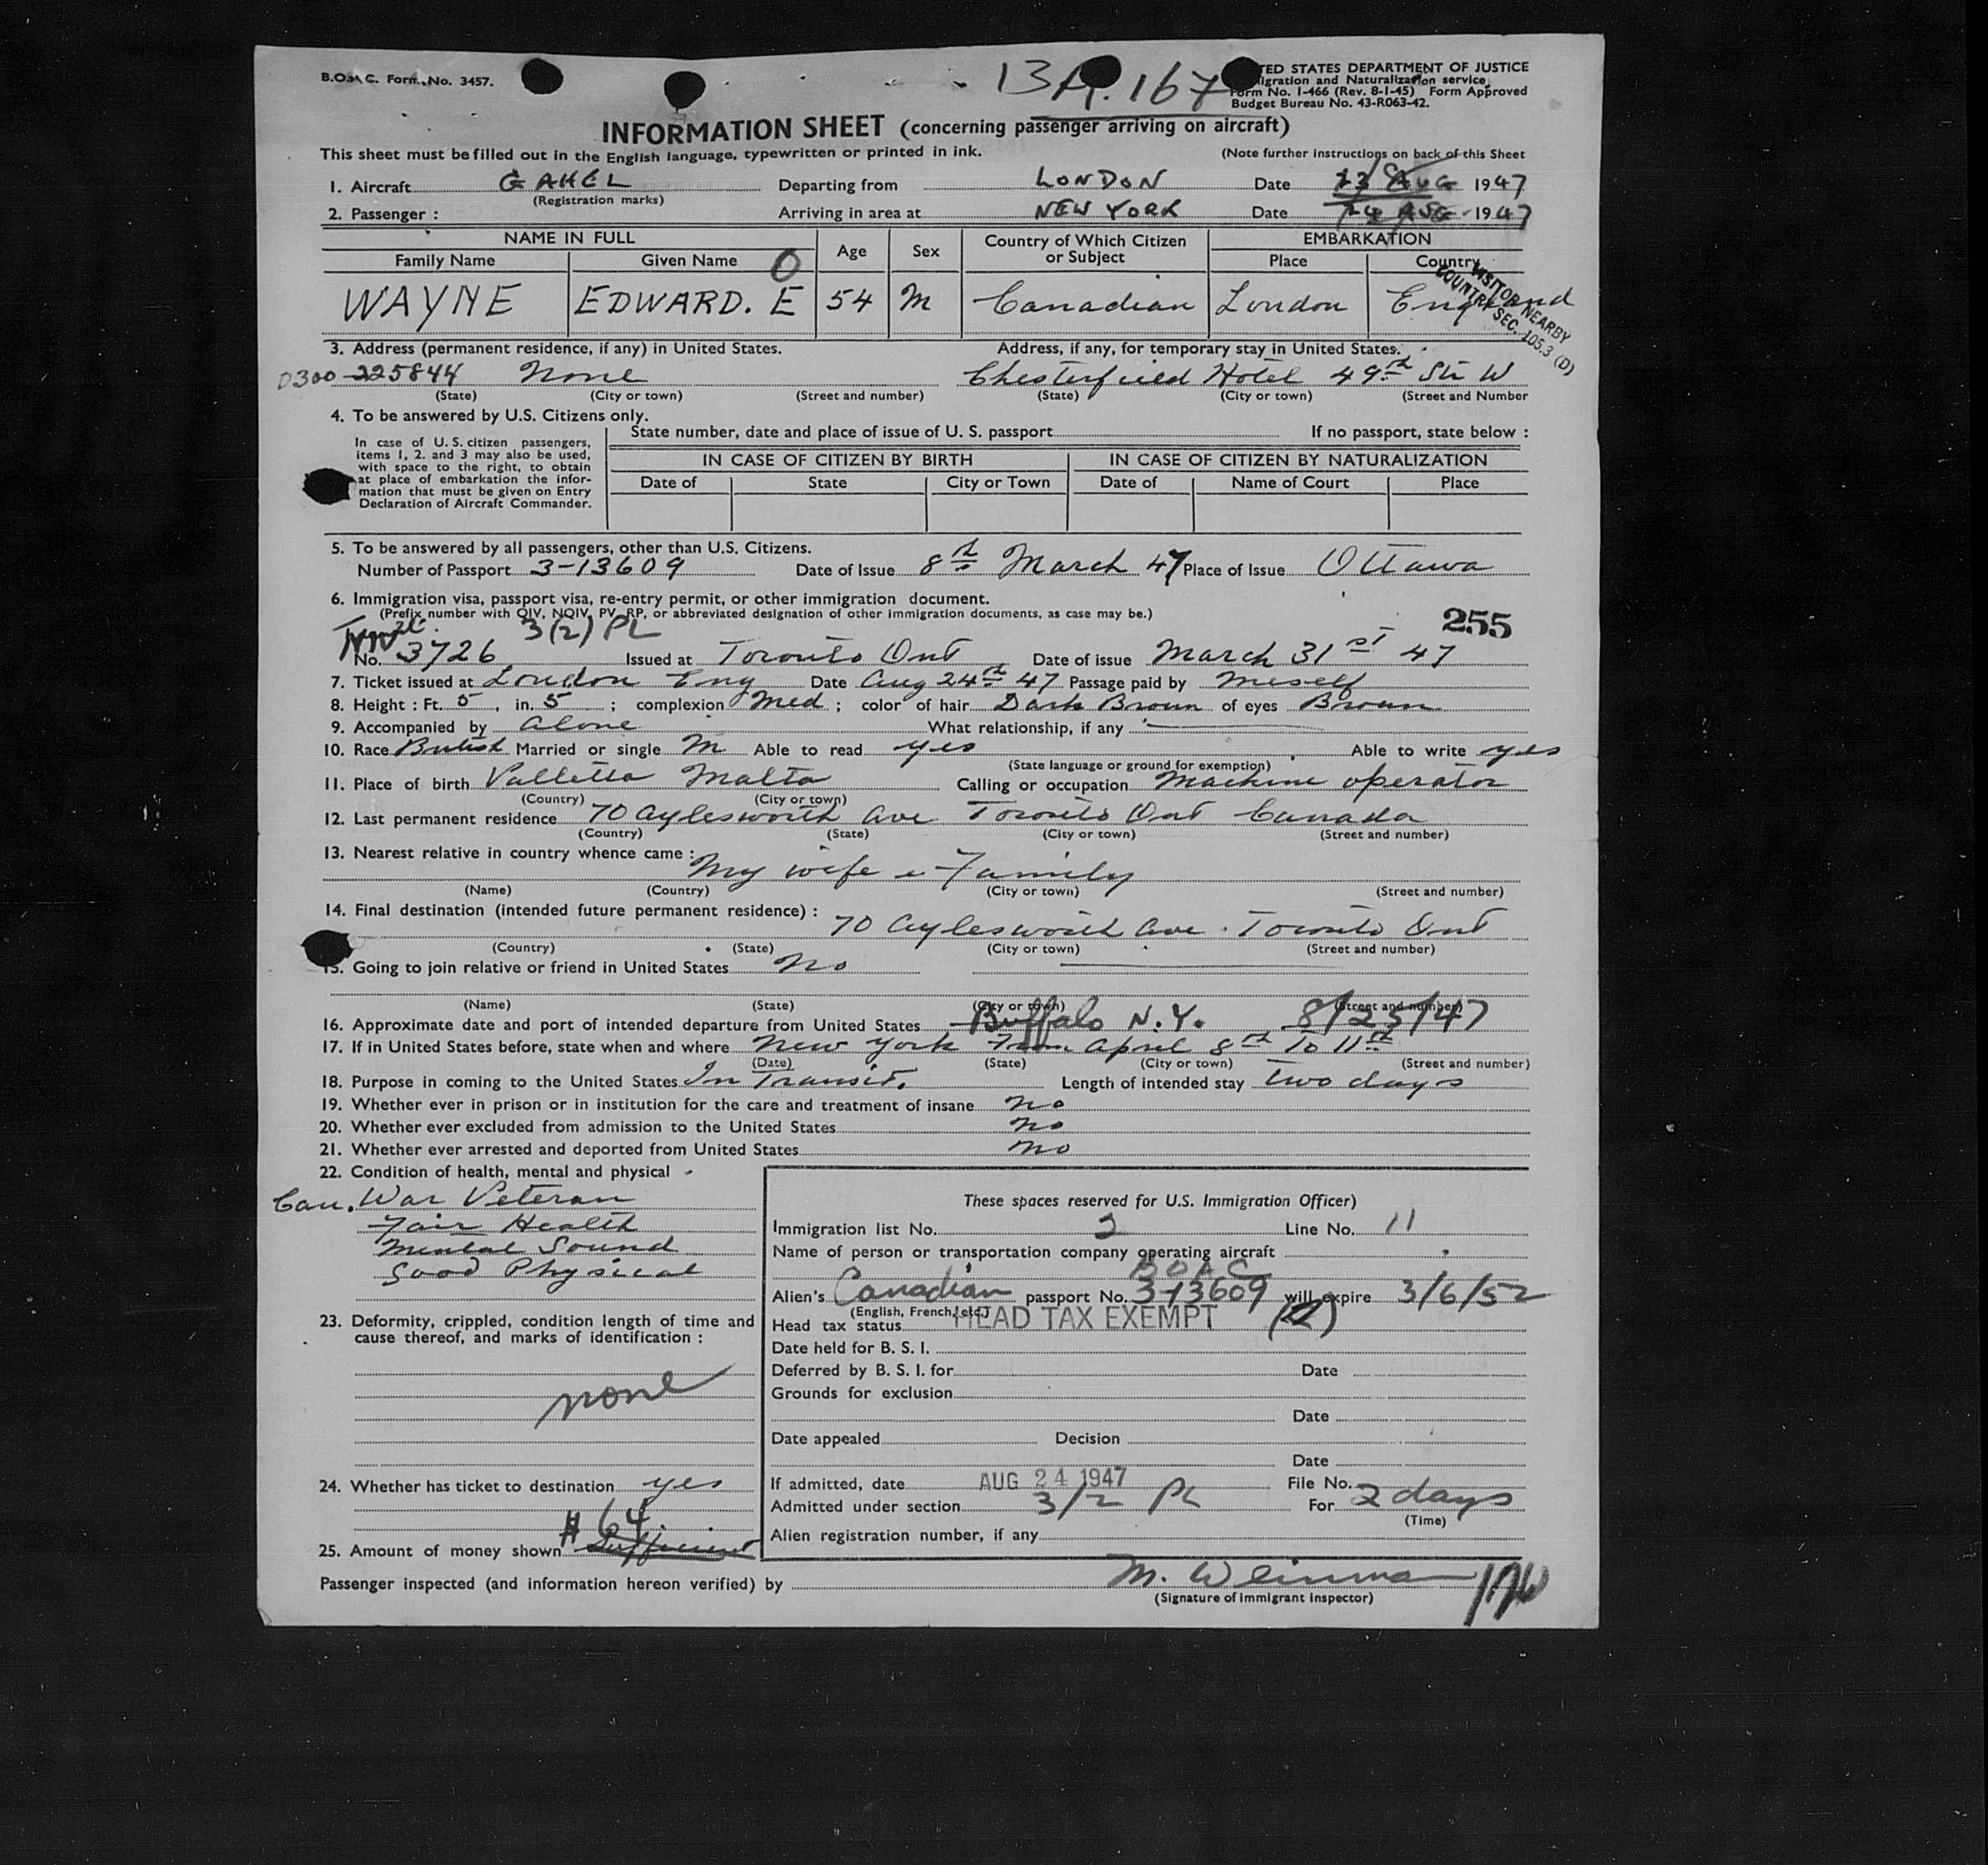 B.O.A.C. Form No. 3457.
13 A. 167
UNITED STATES DEPARTMENT OF JUSTICE
Immigration and Naturalization service
Form No. I-466 (Rev. 8-1-45) Form Approved
Budget Bureau No. 43-R063-42.
INFORMATION SHEET (concerning passenger arriving on aircraft)
This sheet must be filled out in the English language, typewritten or printed in ink. (Note further instructions on back of this Sheet
1. Aircraft GAHEL Departing from LONDON Date 23 AUG 1947
(Registration marks)
2. Passenger : Arriving in area at NEW YORK Date 24 AUG 1947
NAME IN FULL Age Sex Country of Which Citizen or Subject EMBARKATION
Family Name Given Name O Place Country
WAYNE EDWARD. E 54 M Canadian London England
VISITOR NEARBY
COUNTRY SEC. 105.3 (D)
3. Address (permanent residence, if any) in United States. Address, if any, for temporary stay in United States.
0300 225844 None Chesterfield Hotel 49th Str W
(State) (City or town) (Street and number) (State) (City or town) (Street and Number
4. To be answered by U.S. Citizens only.
In case of U. S. citizen passengers, items 1, 2. and 3 may also be used, with space to the right, to obtain at place of embarkation the information that must be given on Entry Declaration of Aircraft Commander.
State number, date and place of issue of U. S. passport If no passport, state below :
IN CASE OF CITIZEN BY BIRTH IN CASE OF CITIZEN BY NATURALIZATION
Date of State City or Town Date of Name of Court Place
5. To be answered by all passengers, other than U.S. Citizens.
Number of Passport 3-13609 Date of Issue 8th March 47 Place of Issue Ottawa
6. Immigration visa, passport visa, re-entry permit, or other immigration document.
(Prefix number with QIV, NQIV, PV, RP, or abbreviated designation of other immigration documents, as case may be.)
255
3(2) PL
No. 3726 Issued at Toronto Ont Date of issue March 31st 47
7. Ticket issued at London Eng Date Aug 24th 47 Passage paid by meself
8. Height : Ft. 5, in. 5 ; complexion Med ; color of hair Dark Brown of eyes Brown
9. Accompanied by alone What relationship, if any
10. Race British Married or single M Able to read yes Able to write yes
(State language or ground for exemption)
11. Place of birth Valletta Malta Calling or occupation Machine operator
(Country) (City or town)
12. Last permanent residence 70 Aylesworth Ave Toronto Ont Canada
(Country) (State) (City or town) (Street and number)
13. Nearest relative in country whence came :
My wife & Family
(Name) (Country) (City or town) (Street and number)
14. Final destination (intended future permanent residence) :
70 Aylesworth Ave. Toronto Ont
(Country) (State) (City or town) (Street and number)
15. Going to join relative or friend in United States No
(Name) (State) (City or town) (Street and number)
16. Approximate date and port of intended departure from United States Buffalo N.Y. 8/25/47
17. If in United States before, state when and where New York From April 8th To 11th
(Date) (State) (City or town) (Street and number)
18. Purpose in coming to the United States In Transit. Length of intended stay Two days
19. Whether ever in prison or in institution for the care and treatment of insane no
20. Whether ever excluded from admission to the United States no
21. Whether ever arrested and deported from United States no
22. Condition of health, mental and physical
Can. War Veteran
Fair Health
Mental Sound
Good Physical
23. Deformity, crippled, condition length of time and cause thereof, and marks of identification :
none
24. Whether has ticket to destination yes
$ 64.
25. Amount of money shown Sufficient
These spaces reserved for U.S. Immigration Officer)
Immigration list No. 2 Line No. 11
Name of person or transportation company operating aircraft
BOAC
Alien's Canadian passport No. 3-13609 will expire 3/6/52
(English, French, etc.)
Head tax status HEAD TAX EXEMPT
Date held for B. S. I.
Deferred by B. S. I. for Date
Grounds for exclusion
Date
Date appealed Decision
Date
If admitted, date AUG 24 1947 File No.
Admitted under section 3/2 PL For 2 days
(Time)
Alien registration number, if any
Passenger inspected (and information hereon verified) by M. Weinman
(Signature of Immigrant Inspector)